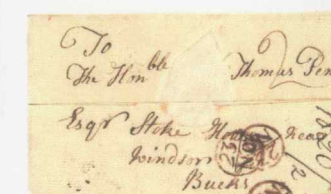 To
The Honble Thomas Pen
Esqr Stoke House near
Windsor
Bucks
23
NO
1/2